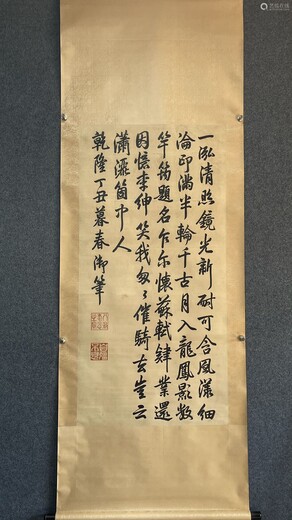 一泓清照鏡光新耐可含風漾細
淪印滿半輪千古月入龍鳳影数
竿筠題名乍尔懷蘇軾肄業還
因憶李紳笑我匆々催騎去豈云
瀟灑箇中人
乾隆丁丑暮春御筆